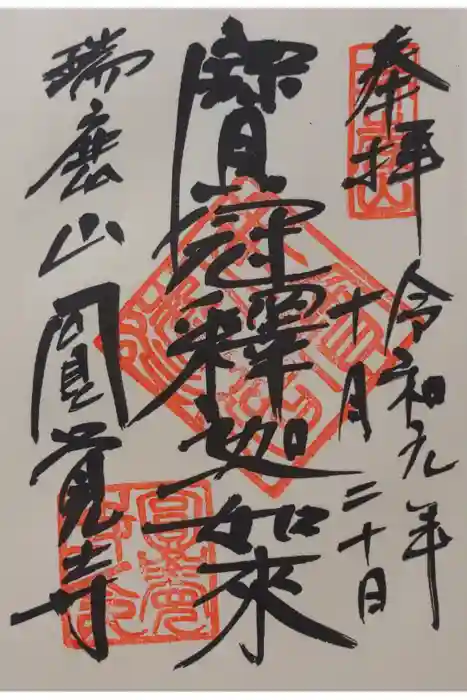 奉拝
令和元年
十月二十日
寶冠釋迦如來
瑞鹿山圓覚寺